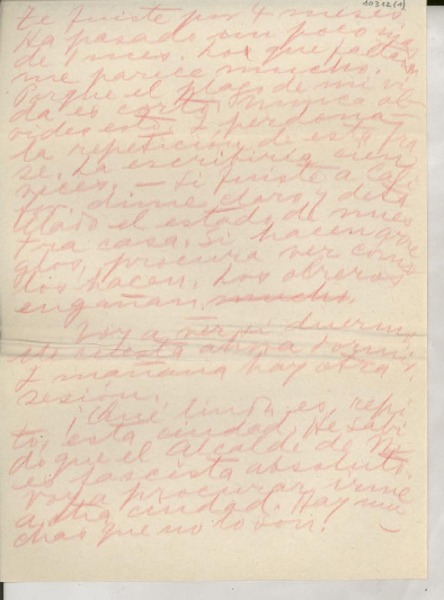 10312(1)
te fuiste por 4 meses.
Ha pasado un poco más
de 1 mes. Los que faltan
me parece mucho.
Porque el plazo de mi vi-
da es corto, nunca ol-
vides esto. I perdona
la repetición de esta fra-
se. La escribiría cien
veces. — Si fuiste a Cali-
for. dime claro y deta
llado el estado de nues
tra casa. Si hacen arre
glos, procura ver como
los hacen. Los obreros
engañan mucho.
Voy a ver si duermo.
Me cuesta ahora dormir.
I mañana hay otra
sesión.
¡Qué linda es, repi-
to, esta ciudad. He sabi
do que el Alcalde de
es fascista absoluto.
Voy a procurar irme
a otra ciudad. Hay mu
chas que no lo son. —